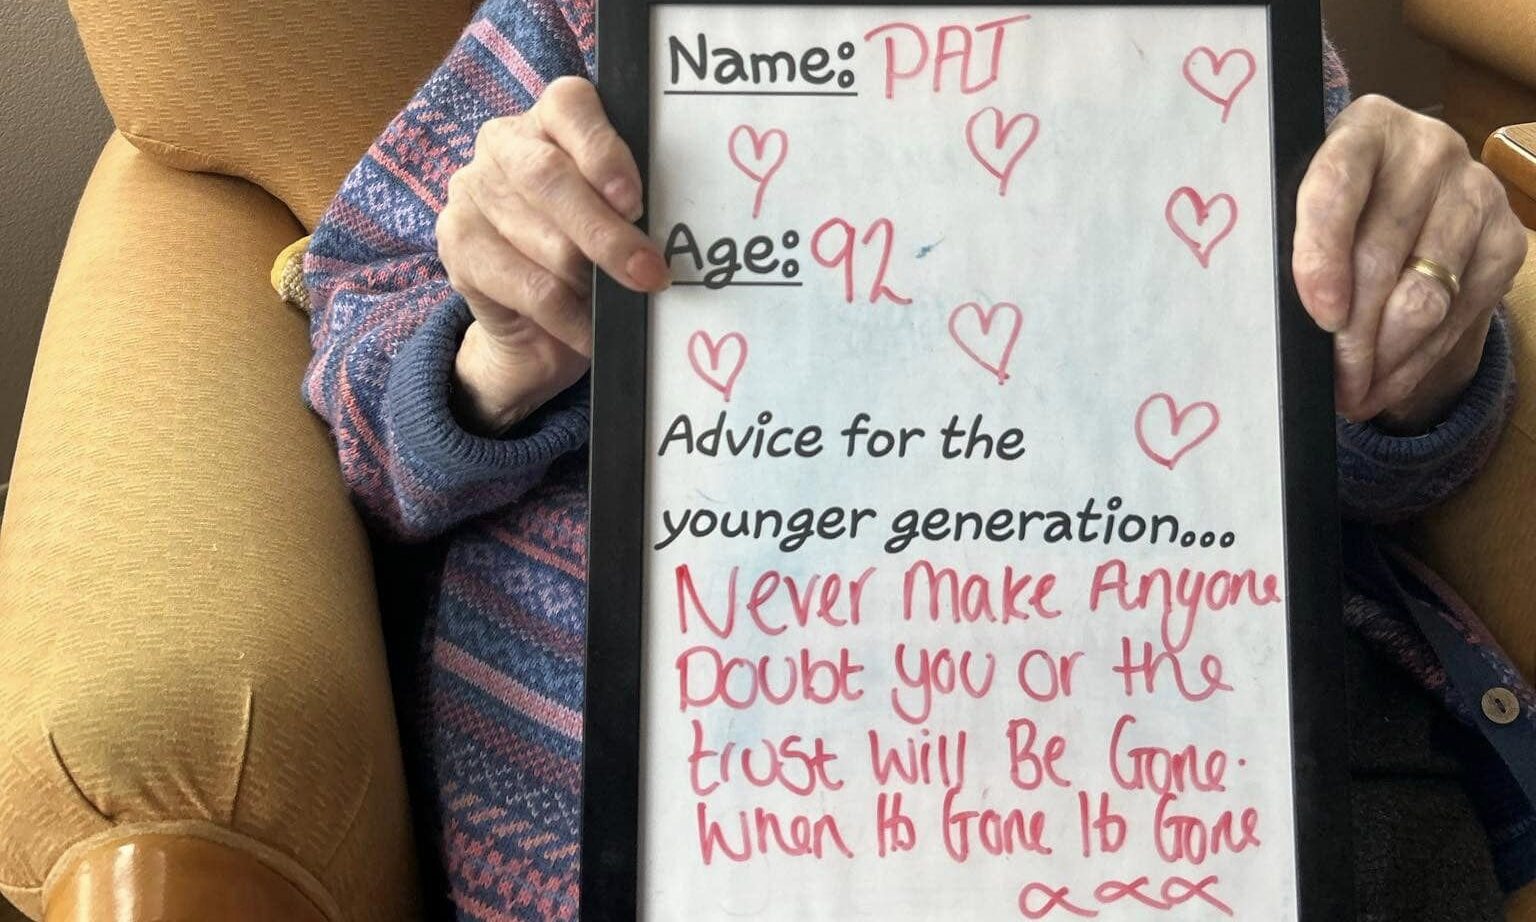 Name: PAT
Age: 92
Advice for the
younger generation...
Never Make Anyone
Doubt you or the
trust Will Be Gone.
When Its Gone Its Gone
xxx